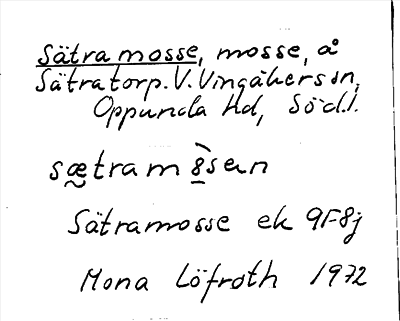 Sätra mosse, mosse, å
Sätratorp. V. Vingåkers sn,
Oppunda hd, Söd.l.
sætram8̀sen
Sätramosse ek 9F8j
Mona Löfroth 1972